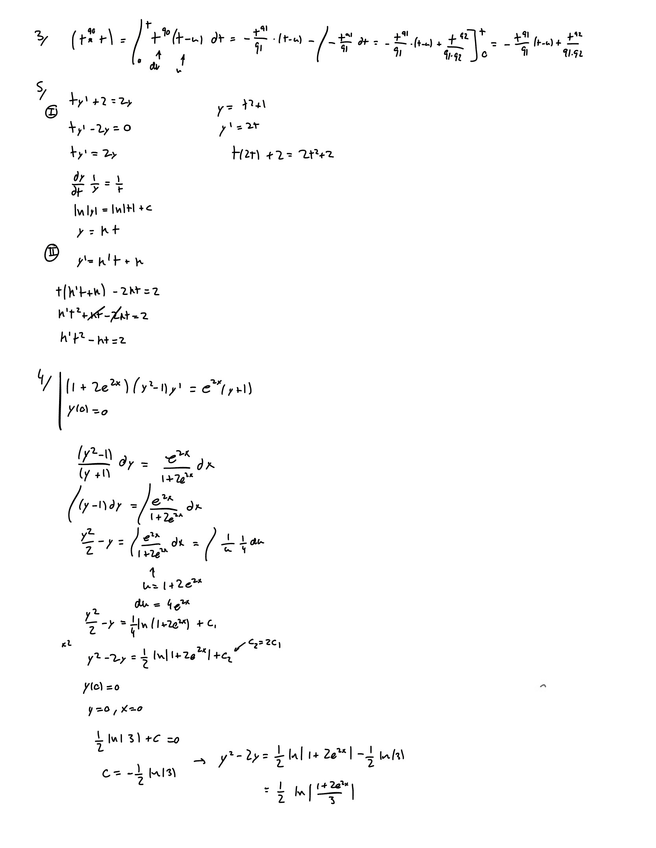 3/ (t^90 * t) = ∫_0^t t^90 (t-u) dt = -t^91/91 · (t-u) - ∫ -t^91/91 dt = -t^91/91 · (t-u) + t^92/91·92 ]_0^t = -t^91/91 (t-u) + t^92/91·92
dv u
5/
Ⓘ ty' + 2 = 2y y = t²+1
ty' - 2y = 0 y' = 2t
ty' = 2y t(2t) + 2 = 2t²+2
dy/dt 1/y = 1/t
ln|y| = ln|t| + c
y = kt
Ⓘ Ⓘ y' = k't + k
t(k't+k) - 2kt = 2
k't² + kt - 2kt = 2
k't² - kt = 2
4/ (1 + 2e^2x)(y²-1)y' = e^2x(y+1)
y(0) = 0
(y²-1)/(y+1) dy = e^2x/(1+2e^2x) dx
∫(y-1)dy = ∫ e^2x/(1+2e^2x) dx
y²/2 - y = ∫ e^2x/(1+2e^2x) dx = ∫ 1/u 1/4 du
↑
u = 1+2e^2x
du = 4e^2x
y²/2 - y = 1/4 ln(1+2e^2x) + c₁
x2 y² - 2y = 1/2 ln|1+2e^2x| + c₂ c₂=2c₁
y(0) = 0
y=0, x=0
1/2 ln|3| + c = 0
c = -1/2 ln|3| → y² - 2y = 1/2 ln|1+2e^2x| - 1/2 ln|3|
= 1/2 ln|(1+2e^2x)/3|